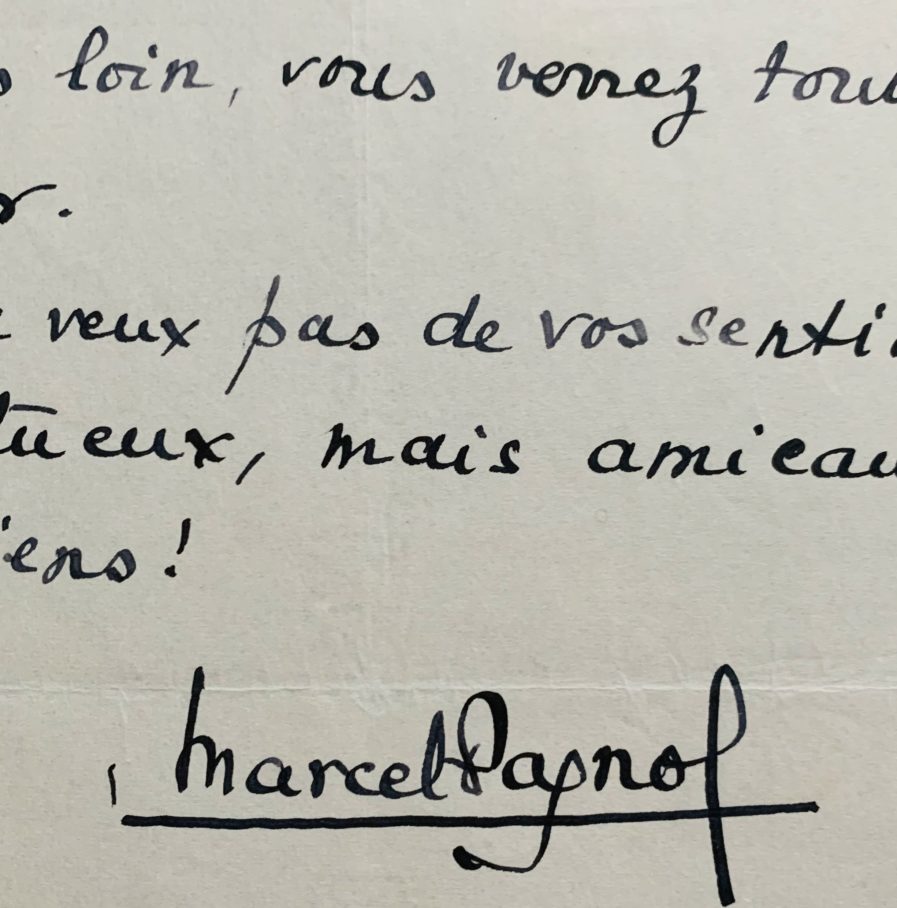 s loin, vous verrez tou
r.
veux pas de vos senti
tueux, mais amicau
iens !
Marcel Pagnol